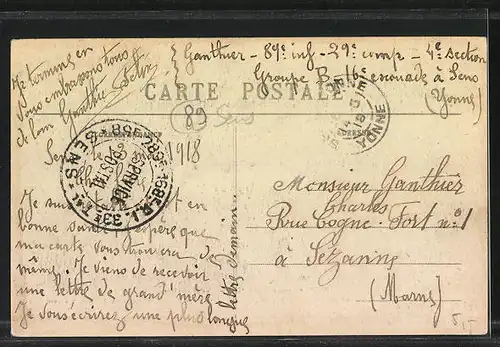 { Ganthier - 89e inf - 29e comp - 4e section
Groupe B - 16e escouade à Sens
(Yonne)
Je termine en
vous embrassant tous
de loin Ganthier
CARTE POSTALE
89
Sens
CORRESPONDANCE
ADRESSE
YONNE
SENS
1918
Je suis
en
bonne santé
espère que
ma carte vous trouvera de
mêmes. Je viens de recevoir
une lettre de grand' mère
Je vous écrirez une plus longue
lettre demain
Monsieur Ganthier
Charles
Rue Cogne-Fort no 1
à Sézanne
(Marne)
5,-